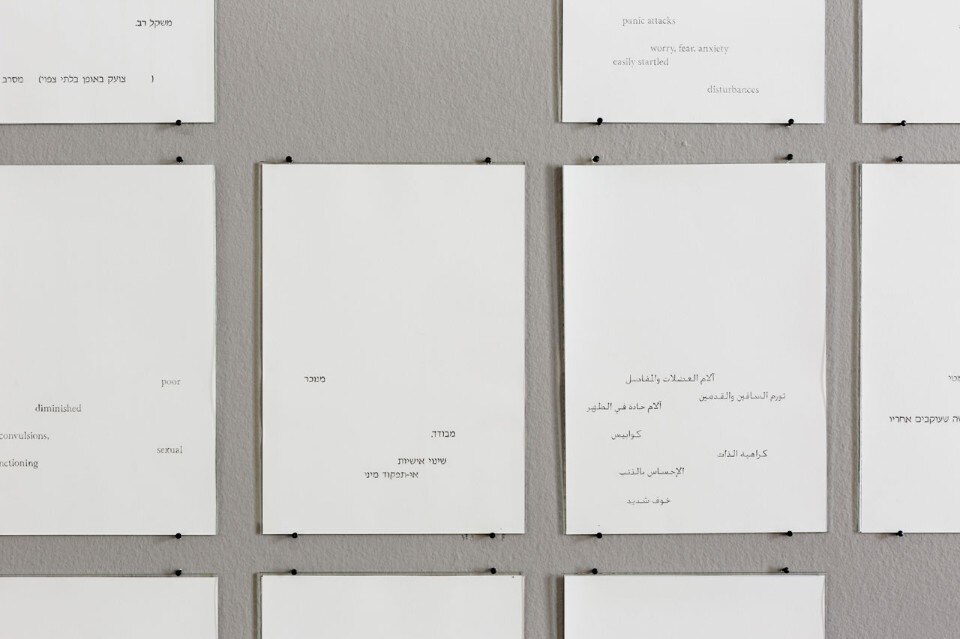 משקל רב.
( צועק באופן בלתי צפוי) מסרב
panic attacks
worry, fear, anxiety
easily startled
disturbances
poor
diminished
convulsions,
sexual
nctioning
מנוכר
מבודד.
שינוי אישיות
אי-תפקוד מיני
آلام العضلات والمفاصل
تورم الساقين والقدمين
آلام حادة في الظهر
كوابيس
كراهية الذات
الإحساس بالذنب
خوف شديد
שעוקבים אחריו